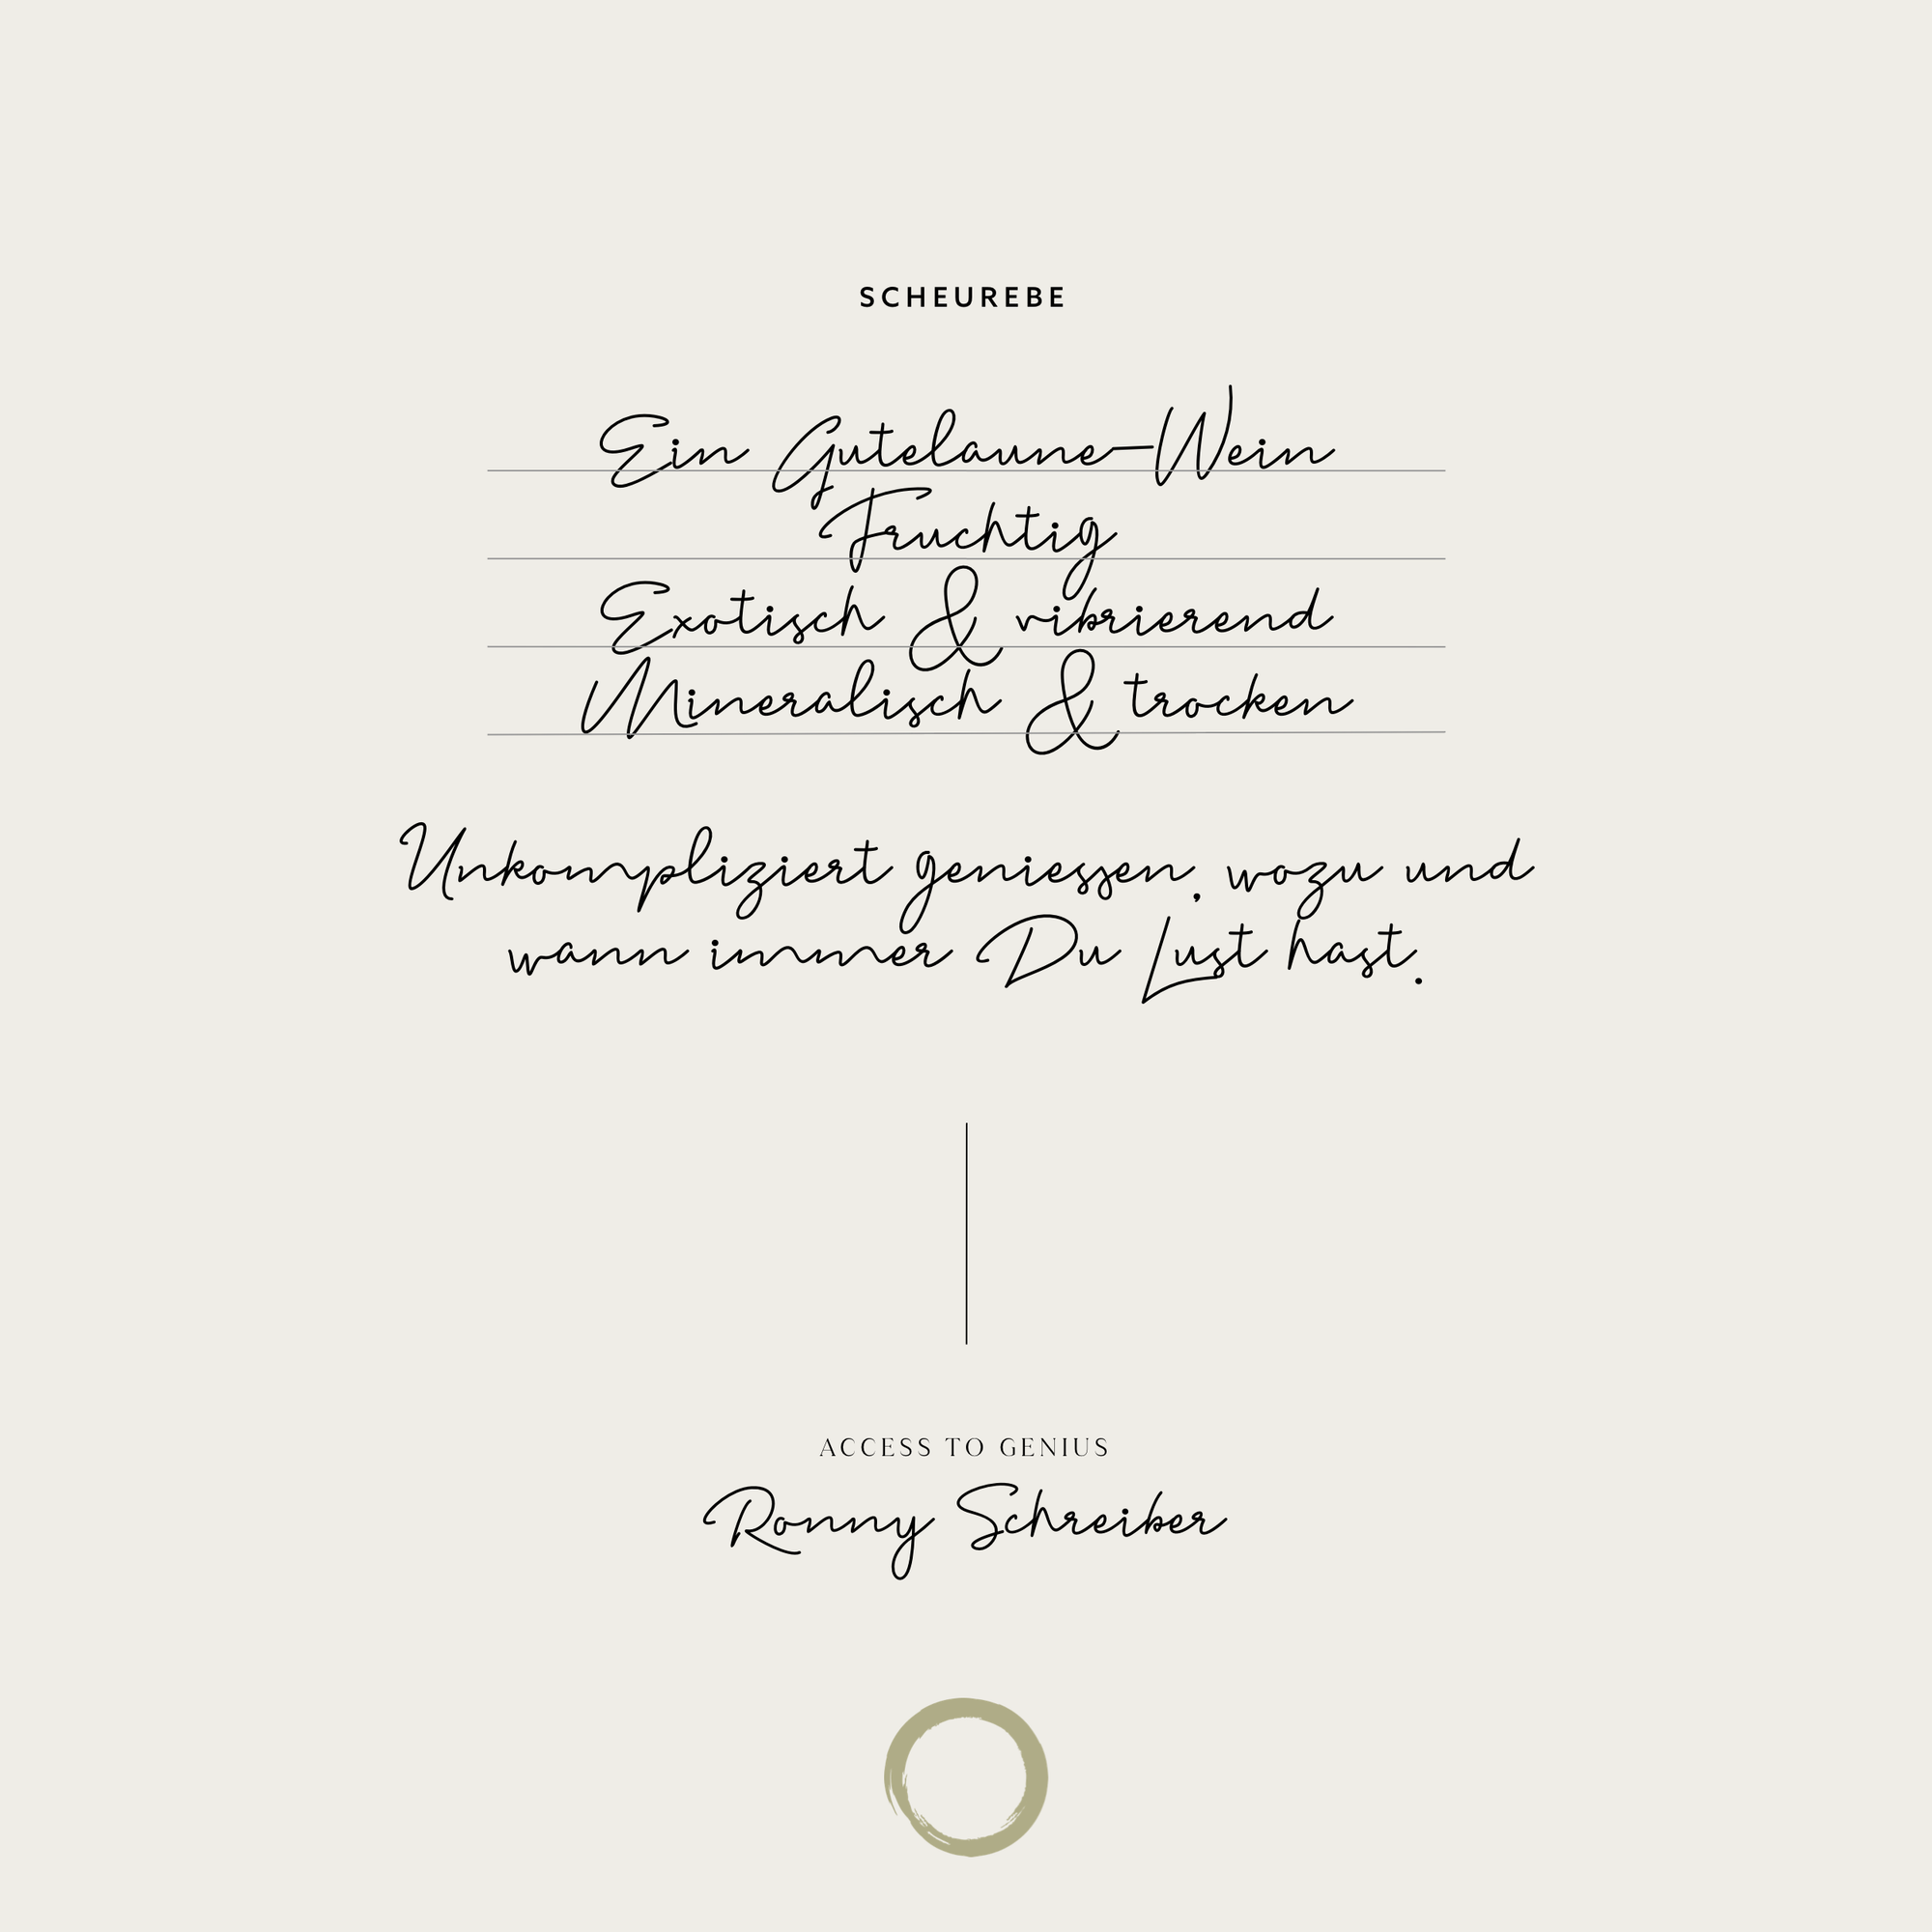 SCHEUREBE
Ein Gutelaune-Wein
Fruchtig
Exotisch & vibrierend
Mineralisch & trocken
Unkompliziert geniessen, wozu und
wann immer Du Lust hast.
ACCESS TO GENIUS
Ronny Schreiber